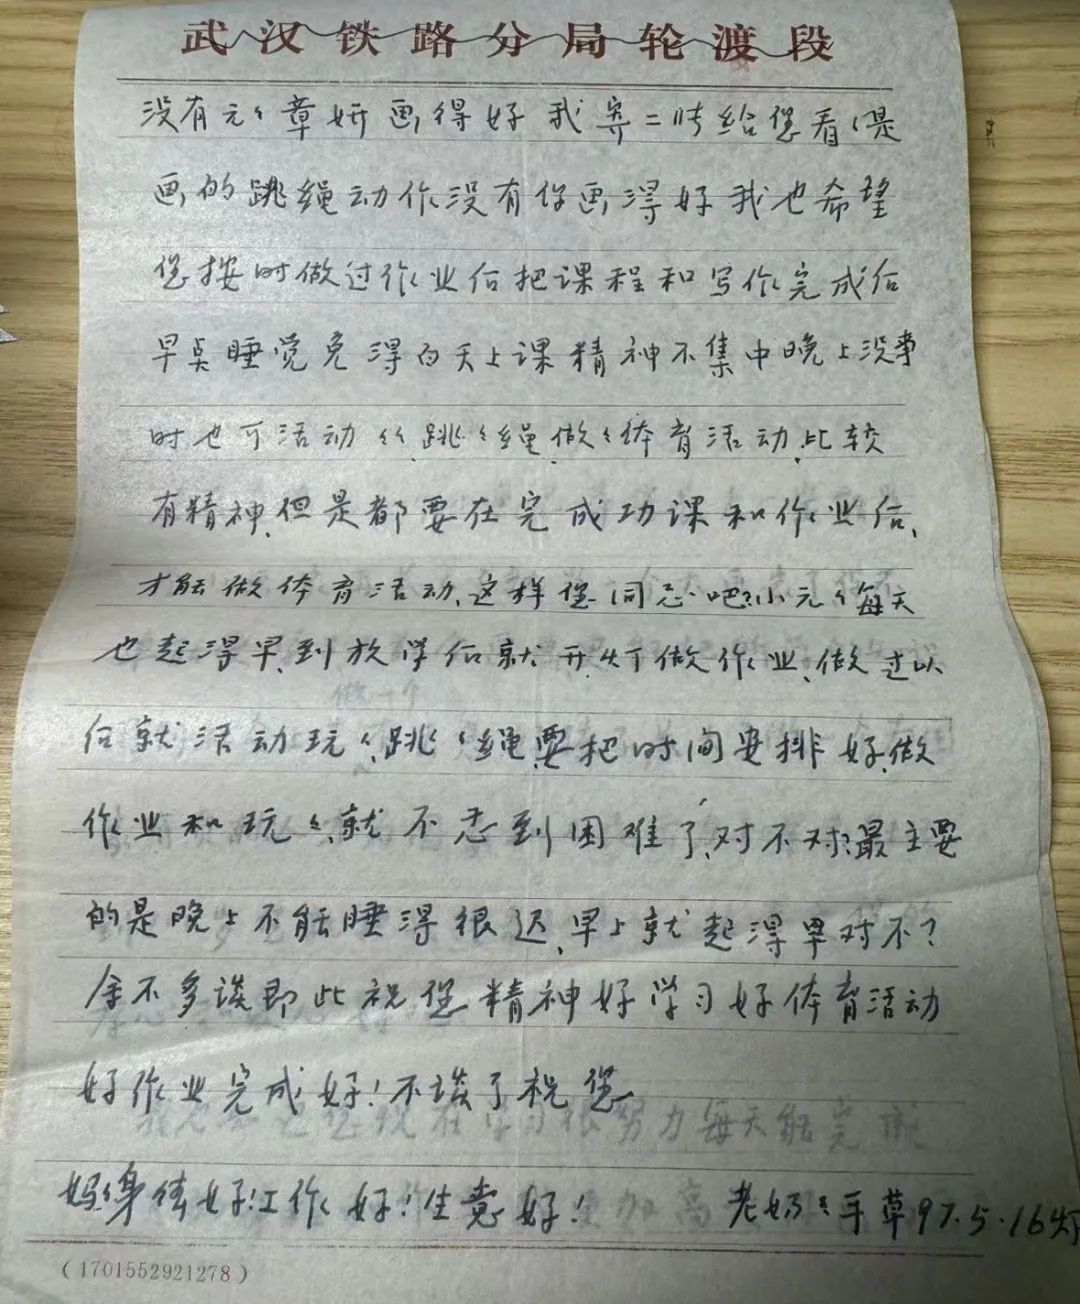 武汉铁路分局轮渡段
没有元々章妍画得好我寄二张给您看々是
画的跳绳动作没有你画得好我也希望
您按时做过作业后把课程和写作完成后
早点睡觉免得白天上课精神不集中晚上没事
时也可活动々、跳々绳、做々体育活动、比较
有精神、但是都要在完成功课和作业后、
才能做体育活动、这样您同意吧?小元々每天
也起得早、到放学后就开灯做作业、做过以
后就活动玩々、跳々绳、要把时间安排好、做
作业和玩々、就不忍到困难了、对不对?最主要
的是晚上不能睡得很迟、早上就起得早对不?
余不多谈即此祝您精神好学习好体育活动
好作业完成好!不谈了祝您
妈々身体好!工作好!生意好! 老奶々手草97.5.16灯
(1701552921278)